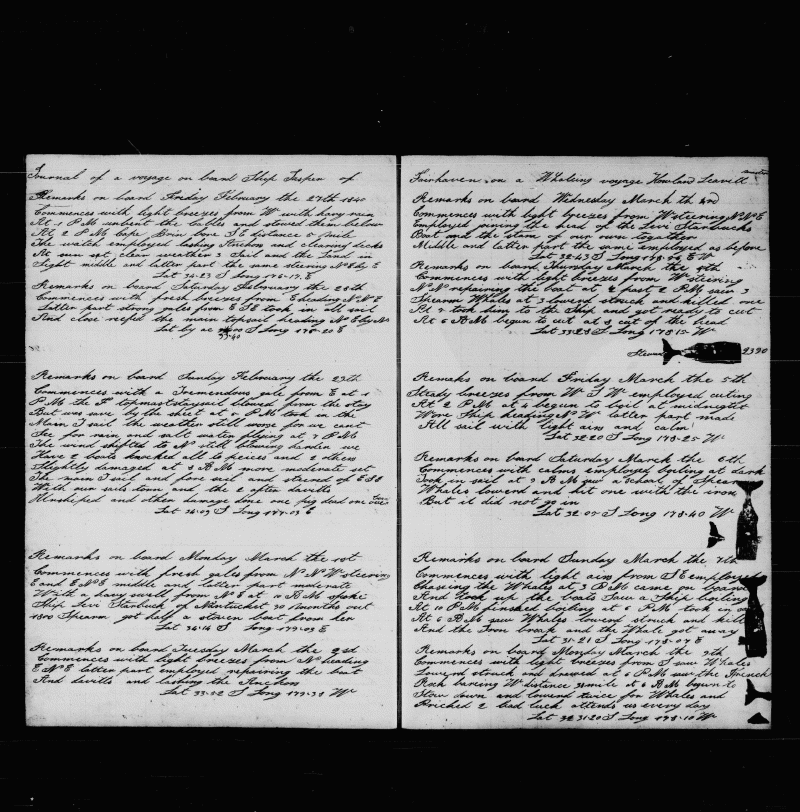 Journal of a voyage on board Ship Jasper of
Remarks on board Friday February the 27th 1840
Commences with light breezes from W with havy rain
At 1 P M unbent the cables and stowed them below
At 2 P M Cape Brin bore S E distance 5 mile
The watch employed lashing Anchors and clearing decks
At sun set clear weather 3 Sail and the Land in
Sight middle and latter part the same steering N E by E
Lat 34-23 S Long 176-17 E
Remarks on board Saturday February the 28th
Commences with fresh breezes from E heading N N E
Latter part strong gales from E S E took in all sail
And close reefed the main topsail heading N E by N
Lat by ac S Long 178-20 E
33-40
Remarks on board Sunday February the 29th
Commences with a Tremendous gale from E at 1
P M the F topmast staysail blowed from the stay
But was save by the sheet at 2 P M took in the
Main T sail the weather still worse for we cant
See for rain and salt water flying at 7 P M
The wind shifted to N still blowing harder we
Have 2 boats knocked all to peices and 2 others
Slightly damaged at 8 A M more moderate set
The main T sail and fore sail and steered of E S E
With our sails done and the 2 after davitts
Unshiped and other damage done one pig dead one
Lat 34-09 S Long 177-03 E
Remarks on board Monday March the 1st
Commences with fresh gales from N N W steering
E and E N E middle and latter part moderate
With a havy swell from N E at 10 A M spoke
Ship Levi Starbuck of Nantucket 30 Months out
1800 Spearm got half a staven boat from her
Lat 34-14 S Long 179-03 E
Remarks on board Tuesday March the 2nd
Commences with light breezes from N heading
E N E latter part employed repairing the boat
And devitts and lashing the Anchors
Lat 33-52 S Long 179-38 W
Fairhaven on a Whaleing voyage Howland Leavitt
Remarks on board Wednesday March th 3rd
Commences with light breezes from W steering N N E
Employed joining the head of the Levi Starbucks
Boat and the starn of our own together
Middle and latter part the same employed as before
Lat 32-43 S Long W
Remarks on board Thursday March the 4th
Commences with light breezes from W steering
N N repairing the boat at 1/2 past 2 P M saw 3
Spearm Whales at 3 lowerd struck and killed one
At 7 took him to the Ship and got ready to cut
At 6 A M begun to cut at 8 cut of the head
Lat S Long 178-15 W
Stewart 2390
Remarks on board Friday March the 5th
Steady breezes from W S W employed cuting
At 2 P M at 4 begun to boil at midnight
Wore Ship heading N W latter part made
All sail with light airs and calm
Lat 32-20 S Long 178-25 W
Remarks on board Saturday March the 6th
Commences with calms employed boiling at dark
Took in sail at 9 A M saw a school of Spearm
Whales lowerd and hit one with the iron
But it did not go in
Lat 32-02 S Long 178-40 W
Remarks on board Sunday March the 7th
Commences with light airs from S E employed
Chasing the Whales at 3 P M came on board
And took up the boats Saw a Ship boiling
At 10 P M finished boiling at 6 P M took in
At 6 A M saw Whales lowerd struck and
And the Iron broak and the Whale got away
Lat 31-21 S Long 178-09 W
Remarks on board Monday March the
Commences with light breezes from S saw Whales
Lowerd struck and drawed at 6 P M saw the French
Rock baring W distance mile at 6 A M begun to
Stow down and lowerd twice for Whales and
Priched 2 bad luck attends us every day
Lat 31-20 S Long 178-10 W